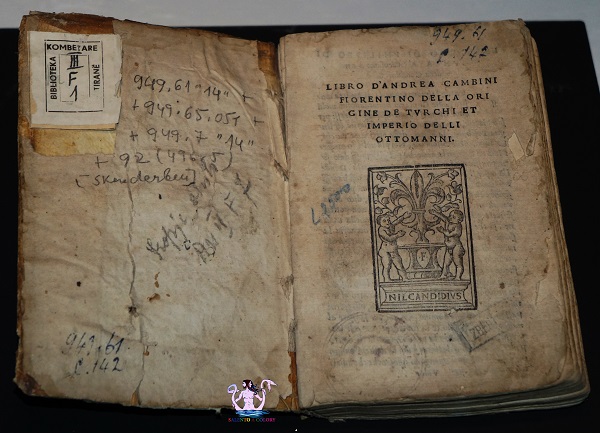 BIBLIOTEKA
KOMBETARE
TIRANË
III
F
1
949.61"14" +
+ 949.65.051 +
+ 949.7 "14"
+ 92 (496.5)
(Skenderbeu)
949.61
C.142
949.61
C.142
LIBRO D'ANDREA CAMBINI
FIORENTINO DELLA ORI
GINE DE TVRCHI ET
IMPERIO DELLI
OTTOMANNI.
F
NIL CANDIDIVS